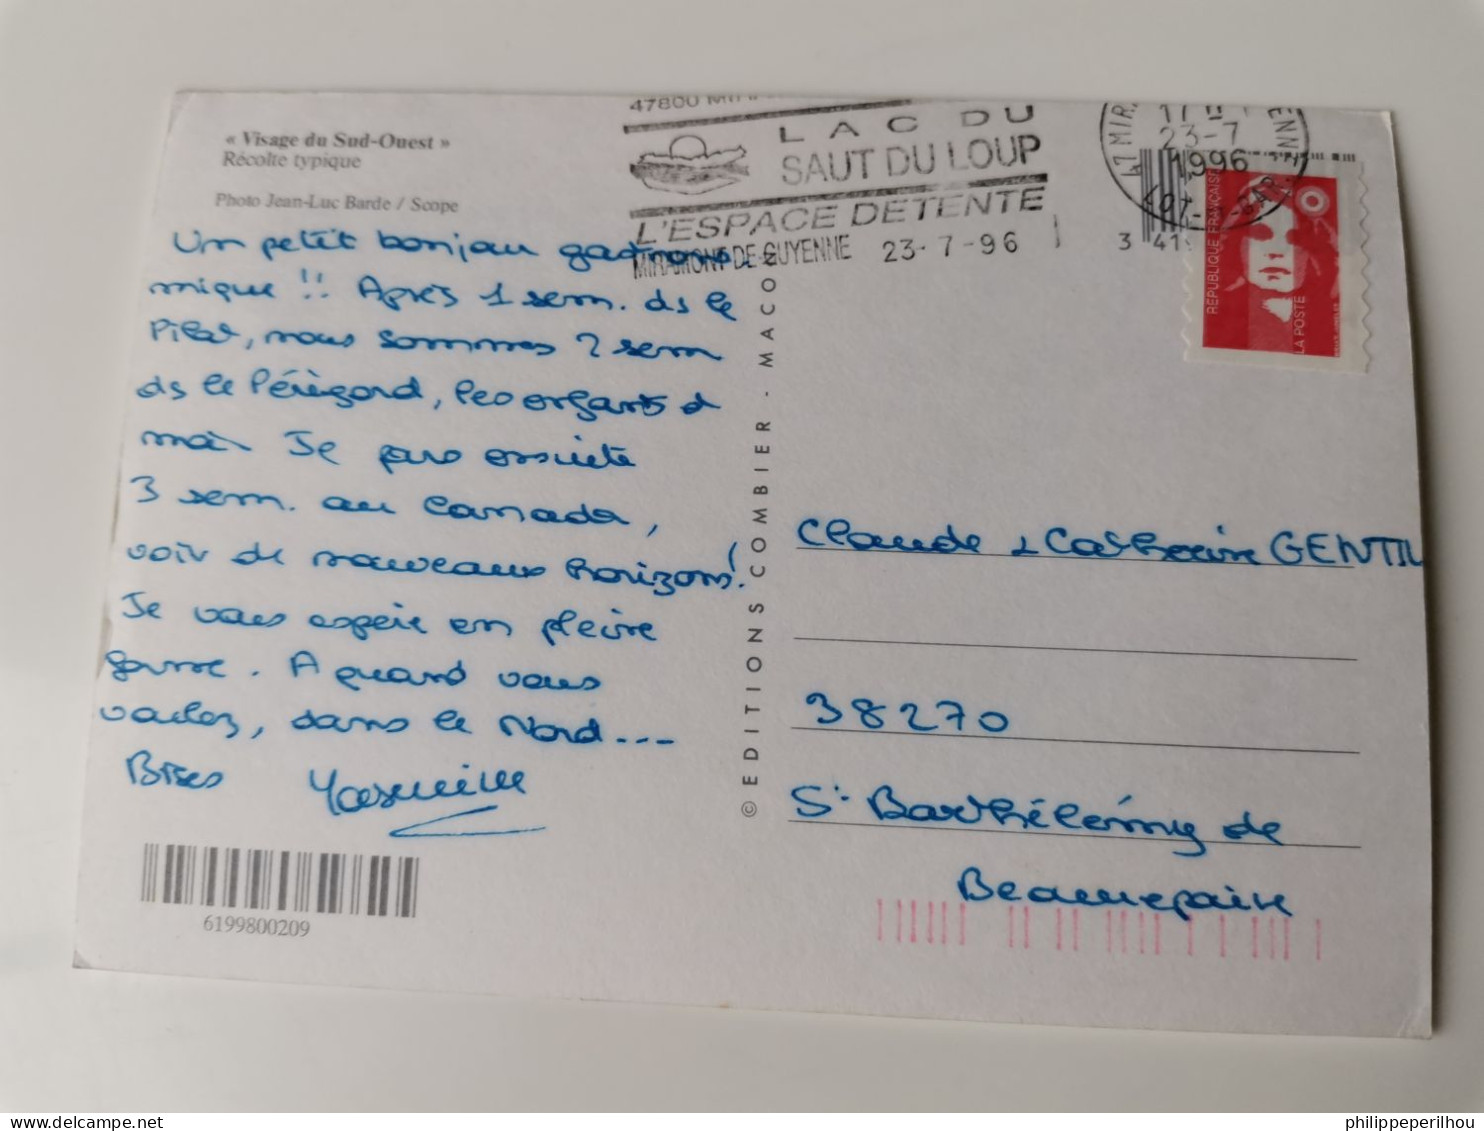 « Visage du Sud-Ouest »
Récolte typique
Photo Jean-Luc Barde / Scope
Un petit bonjour gastrono-
mique !! Après 1 sem. ds le
Pilat, nous sommes 2 sem
ds le Périgord, les enfants &
moi. Je pars ensuite
3 sem. au Canada,
voir de nouveaux horizons!
Je vous espère en pleine
forme. A quand vous
voulez, dans le Nord...
Bises
6199800209
© EDITIONS COMBIER - MACON
47800
LAC DU
SAUT DU LOUP
L'ESPACE DETENTE
MIRAMONT-DE-GUYENNE 23-7-96
47 MIR
17 H
23-7
1996
ENNE
3 419
REPUBLIQUE FRANÇAISE
LA POSTE
Claude & Catherine GENTIL
38270
St Barthélémy de
Beaurepaire
philippeperilhou